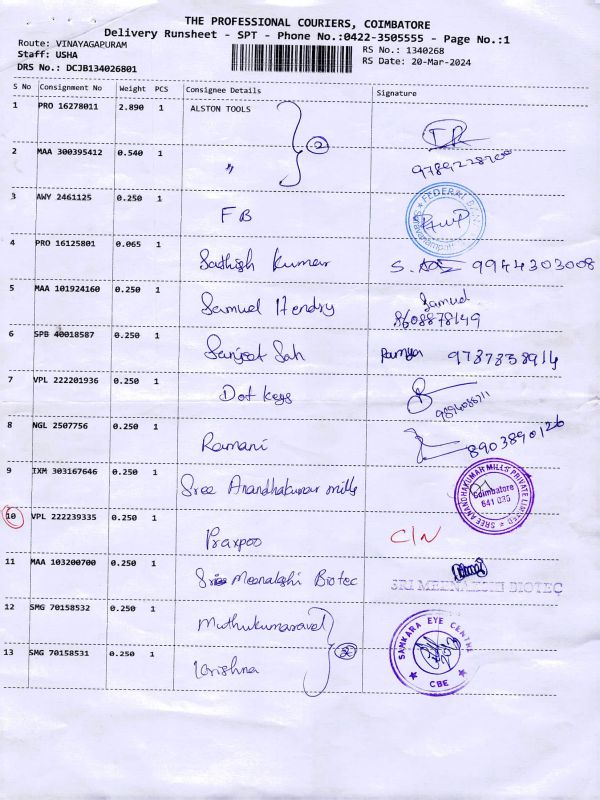 THE PROFESSIONAL COURIERS, COIMBATORE
Delivery Runsheet - SPT - Phone No.:0422-3505555 - Page No.:1
Route: VINAYAGAPURAM
Staff: USHA
DRS No.: DCJB134026801
RS No.: 1340268
RS Date: 20-Mar-2024
S No Consignment No Weight PCS Consignee Details Signature
1 PRO 16278011 2.890 1 ALSTON TOOLS
2
2 MAA 300395412 0.540 1 "
3 AWY 2461125 0.250 1 FB
FEDERAL
4 PRO 16125801 0.065 1 Sathish Kumar 9944303008
5 MAA 101924160 0.250 1 Samuel Hendry Samuel
8608878149
6 SPB 40018587 0.250 1 Sanjeet Sah Ramya 9787338914
7 VPL 222201936 0.250 1 Dot keys
8 NGL 2507756 0.250 1 Ramani 8903890126
9 IXM 303167646 0.250 1 Sree Anandhakumar mills
SREE ANANDHAKUMAR MILLS PRIVATE LIMITED
Coimbatore
641 035
10 VPL 222239335 0.250 1 Praxpoo C/N
11 MAA 103200700 0.250 1 Sri Meenakshi Biotec
SRI MEENAKSHI BIOTEC
12 SMG 70158532 0.250 1 Muthukumaravel
SANKARA EYE CENTRE
CBE
13 SMG 70158531 0.250 1 Krishna